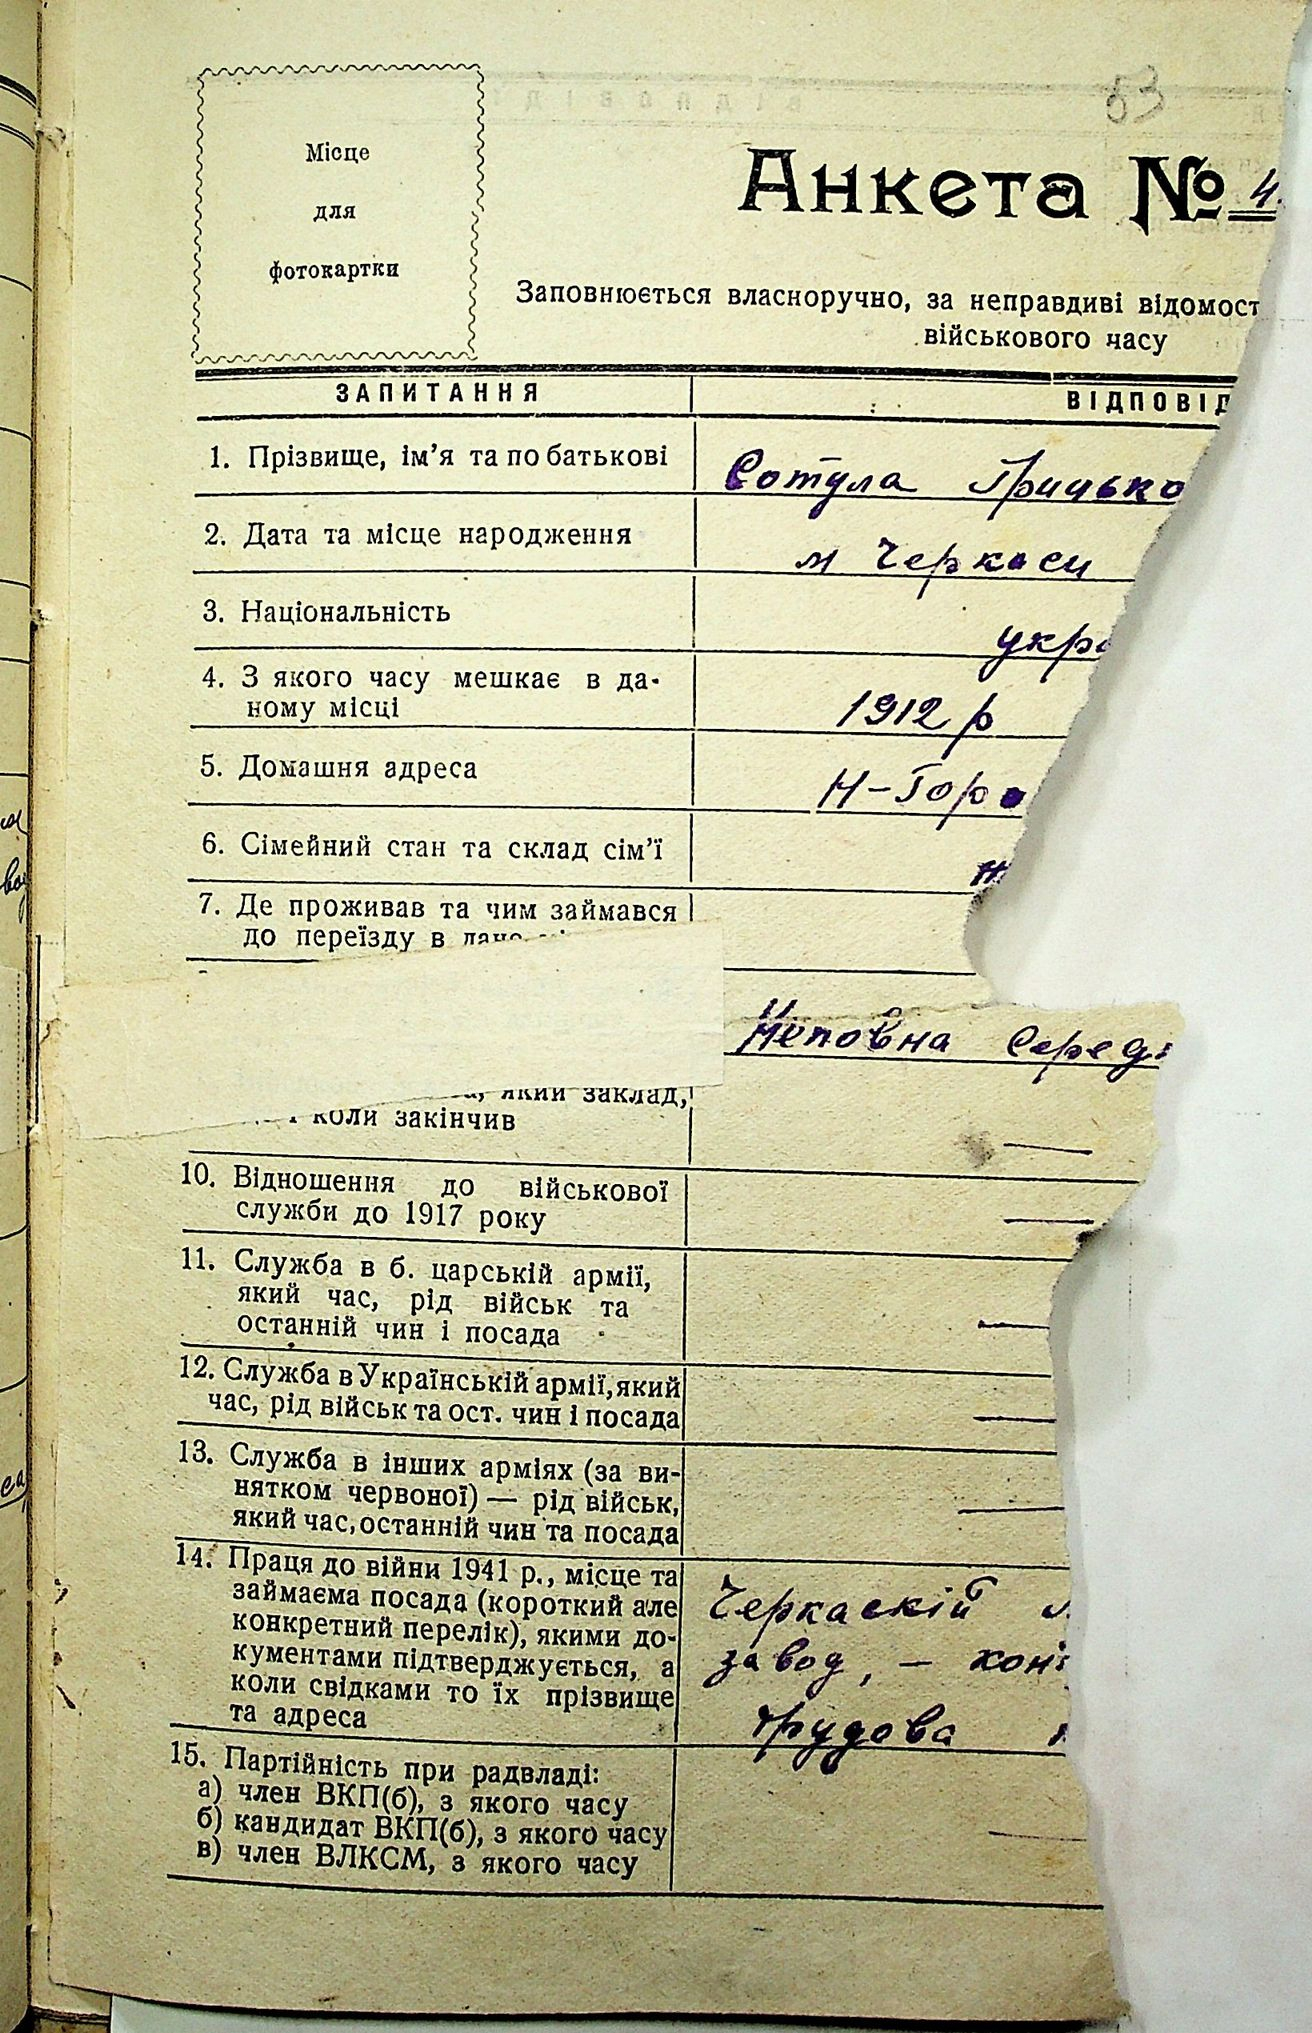 53
Місце
для
фотокартки
Анкета № 4
Заповнюється власноручно, за неправдиві відомост
військового часу
ЗАПИТАННЯ
ВІДПОВІД
1. Прізвище, ім’я та по батькові
Сотула Грицько
2. Дата та місце народження
м Черкаси
3. Національність
укра
4. З якого часу мешкає в да-
ному місці
1912 р
5. Домашня адреса
Н-Горо
6. Сімейний стан та склад сім’ї
н
7. Де проживав та чим займався
до переїзду в дано
Неповна серед
який заклад,
коли закінчив
—
10. Відношення до військової
служби до 1917 року
—
11. Служба в б. царській армії,
який час, рід військ та
останній чин і посада
—
12. Служба в Українській армії, який
час, рід військ та ост. чин і посада
—
13. Служба в інших арміях (за ви-
нятком червоної) — рід військ,
який час, останній чин та посада
—
14. Праця до війни 1941 р., місце та
займаєма посада (короткий але
конкретний перелік), якими до-
кументами підтверджується, а
коли свідками то їх прізвище
та адреса
Черкаскій
завод, — кон
трудова
15. Партійність при радвладі:
а) член ВКП(б), з якого часу
б) кандидат ВКП(б), з якого часу
в) член ВЛКСМ, з якого часу
—